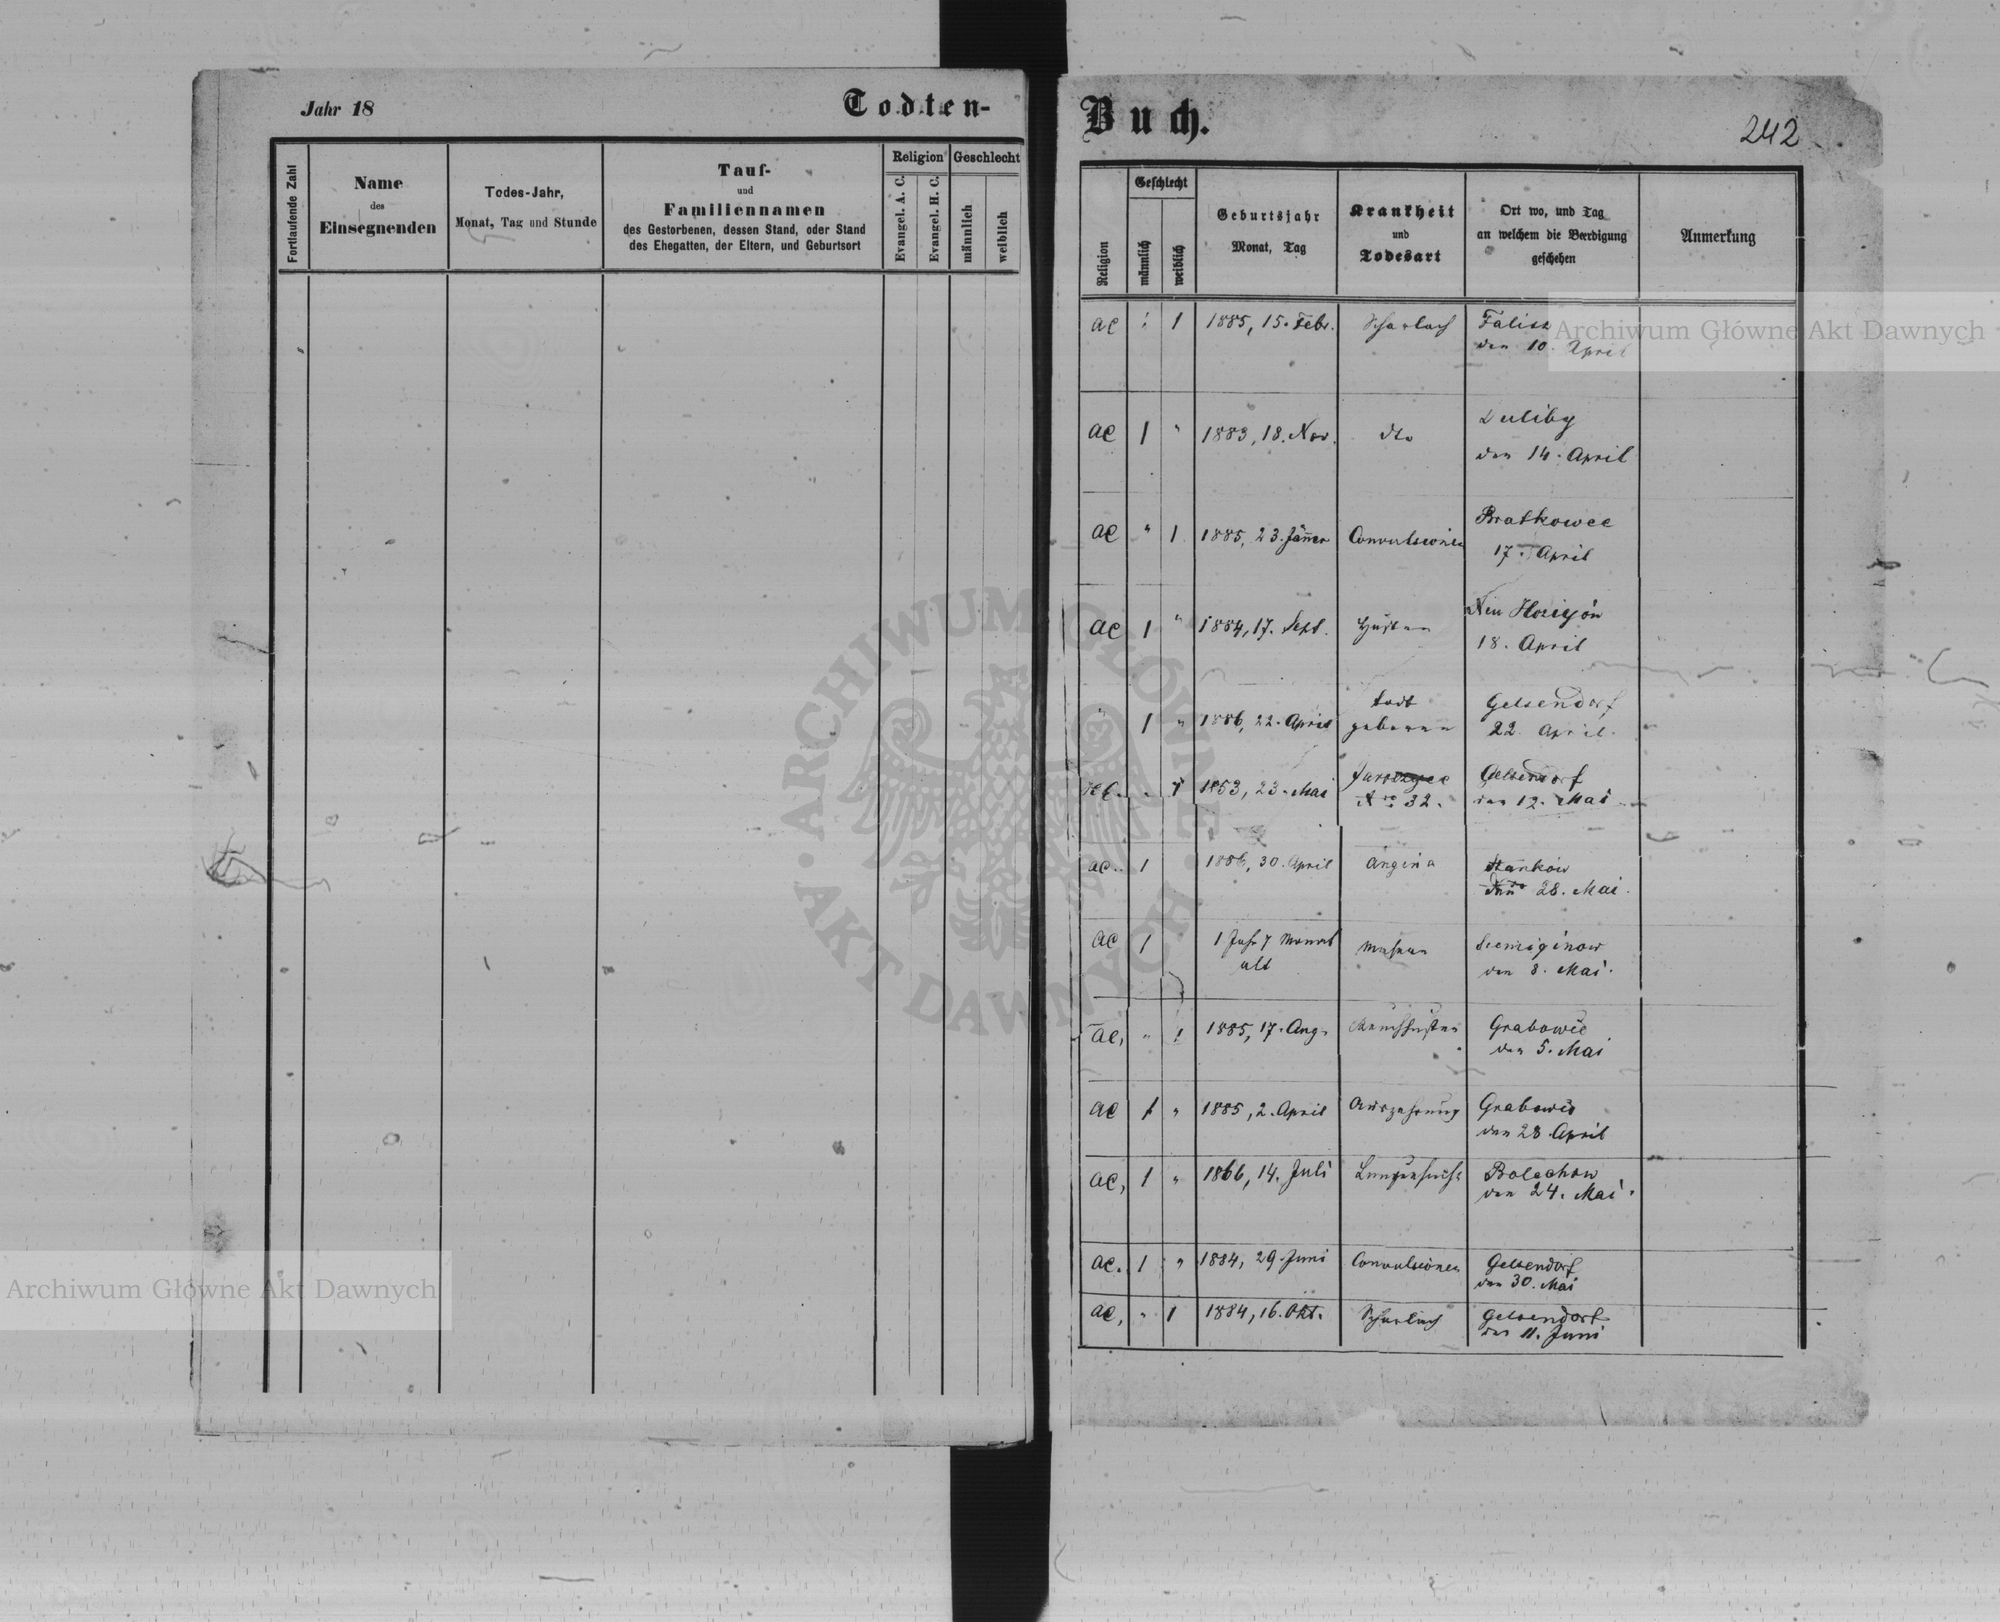 Jahr 18
Todten-
Fortlaufende Zahl
Name
des
Einsegnenden
Todes-Jahr,
Monat, Tag und Stunde
Tauf-
und
Familiennamen
des Gestorbenen, dessen Stand, oder Stand
des Ehegatten, der Eltern, und Geburtsort
Religion
Evangel. A. C.
Evangel. H. C.
Geschlecht
männlich
weiblich
Buch.
242
Religion
Geschlecht
männlich
weiblich
Geburtsjahr
Monat, Tag
Krankheit
und
Todesart
Ort wo, und Tag
an welchem die Beerdigung
geschehen
Anmerkung
ac 1 1885, 15. Febr. Scharlach Falisz
den 10. April
ac 1 " 1883, 18. Nov. dto Duliby
den 14. April
ac " 1 1885, 23. Jänner Convulsionen Bratkowce
17. April
ac 1 " 1884, 17. Sept. Husten Neu
18. April
1 " 1886, 22. April todt
geboren Gelsendorf
22. April
1853, 23. Mai
No 32. Gelsendorf
den 12. Mai
ac. 1 1886, 30. April Angina Stańków
28. Mai.
ac 1 1 Jahr 7 Monat
alt Masern Siemiginow
den 8. Mai.
ac, " 1 1885, 17. Aug. Keuchhusten Grabowic
den 5. Mai
ac 1 " 1885, 2. April Auszehrung Grabowic
den 28. April
ac, 1 " 1866, 14. Juli Lungensucht Bolechow
den 24. Mai.
ac. 1 " 1884, 29. Juni Convulsionen Gelsendorf
den 30. Mai
ac, " 1 1884, 16. Okt. Scharlach Gelsendorf
den 11. Juni
Archiwum Główne Akt Dawnych
ARCHIWUM GŁÓWNE • AKT DAWNYCH •
Archiwum Główne Akt Dawnych